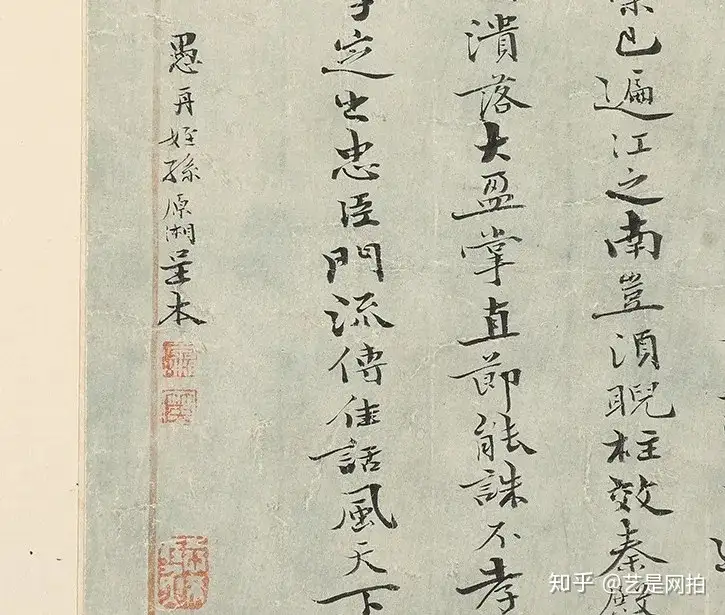 已遍江之南豈須睨柱效秦
潰落大盈掌直節能誅不孝
定出忠臣門流傳佳話風天下
愚再姪孫原湘呈本
知乎 @艺是网拍